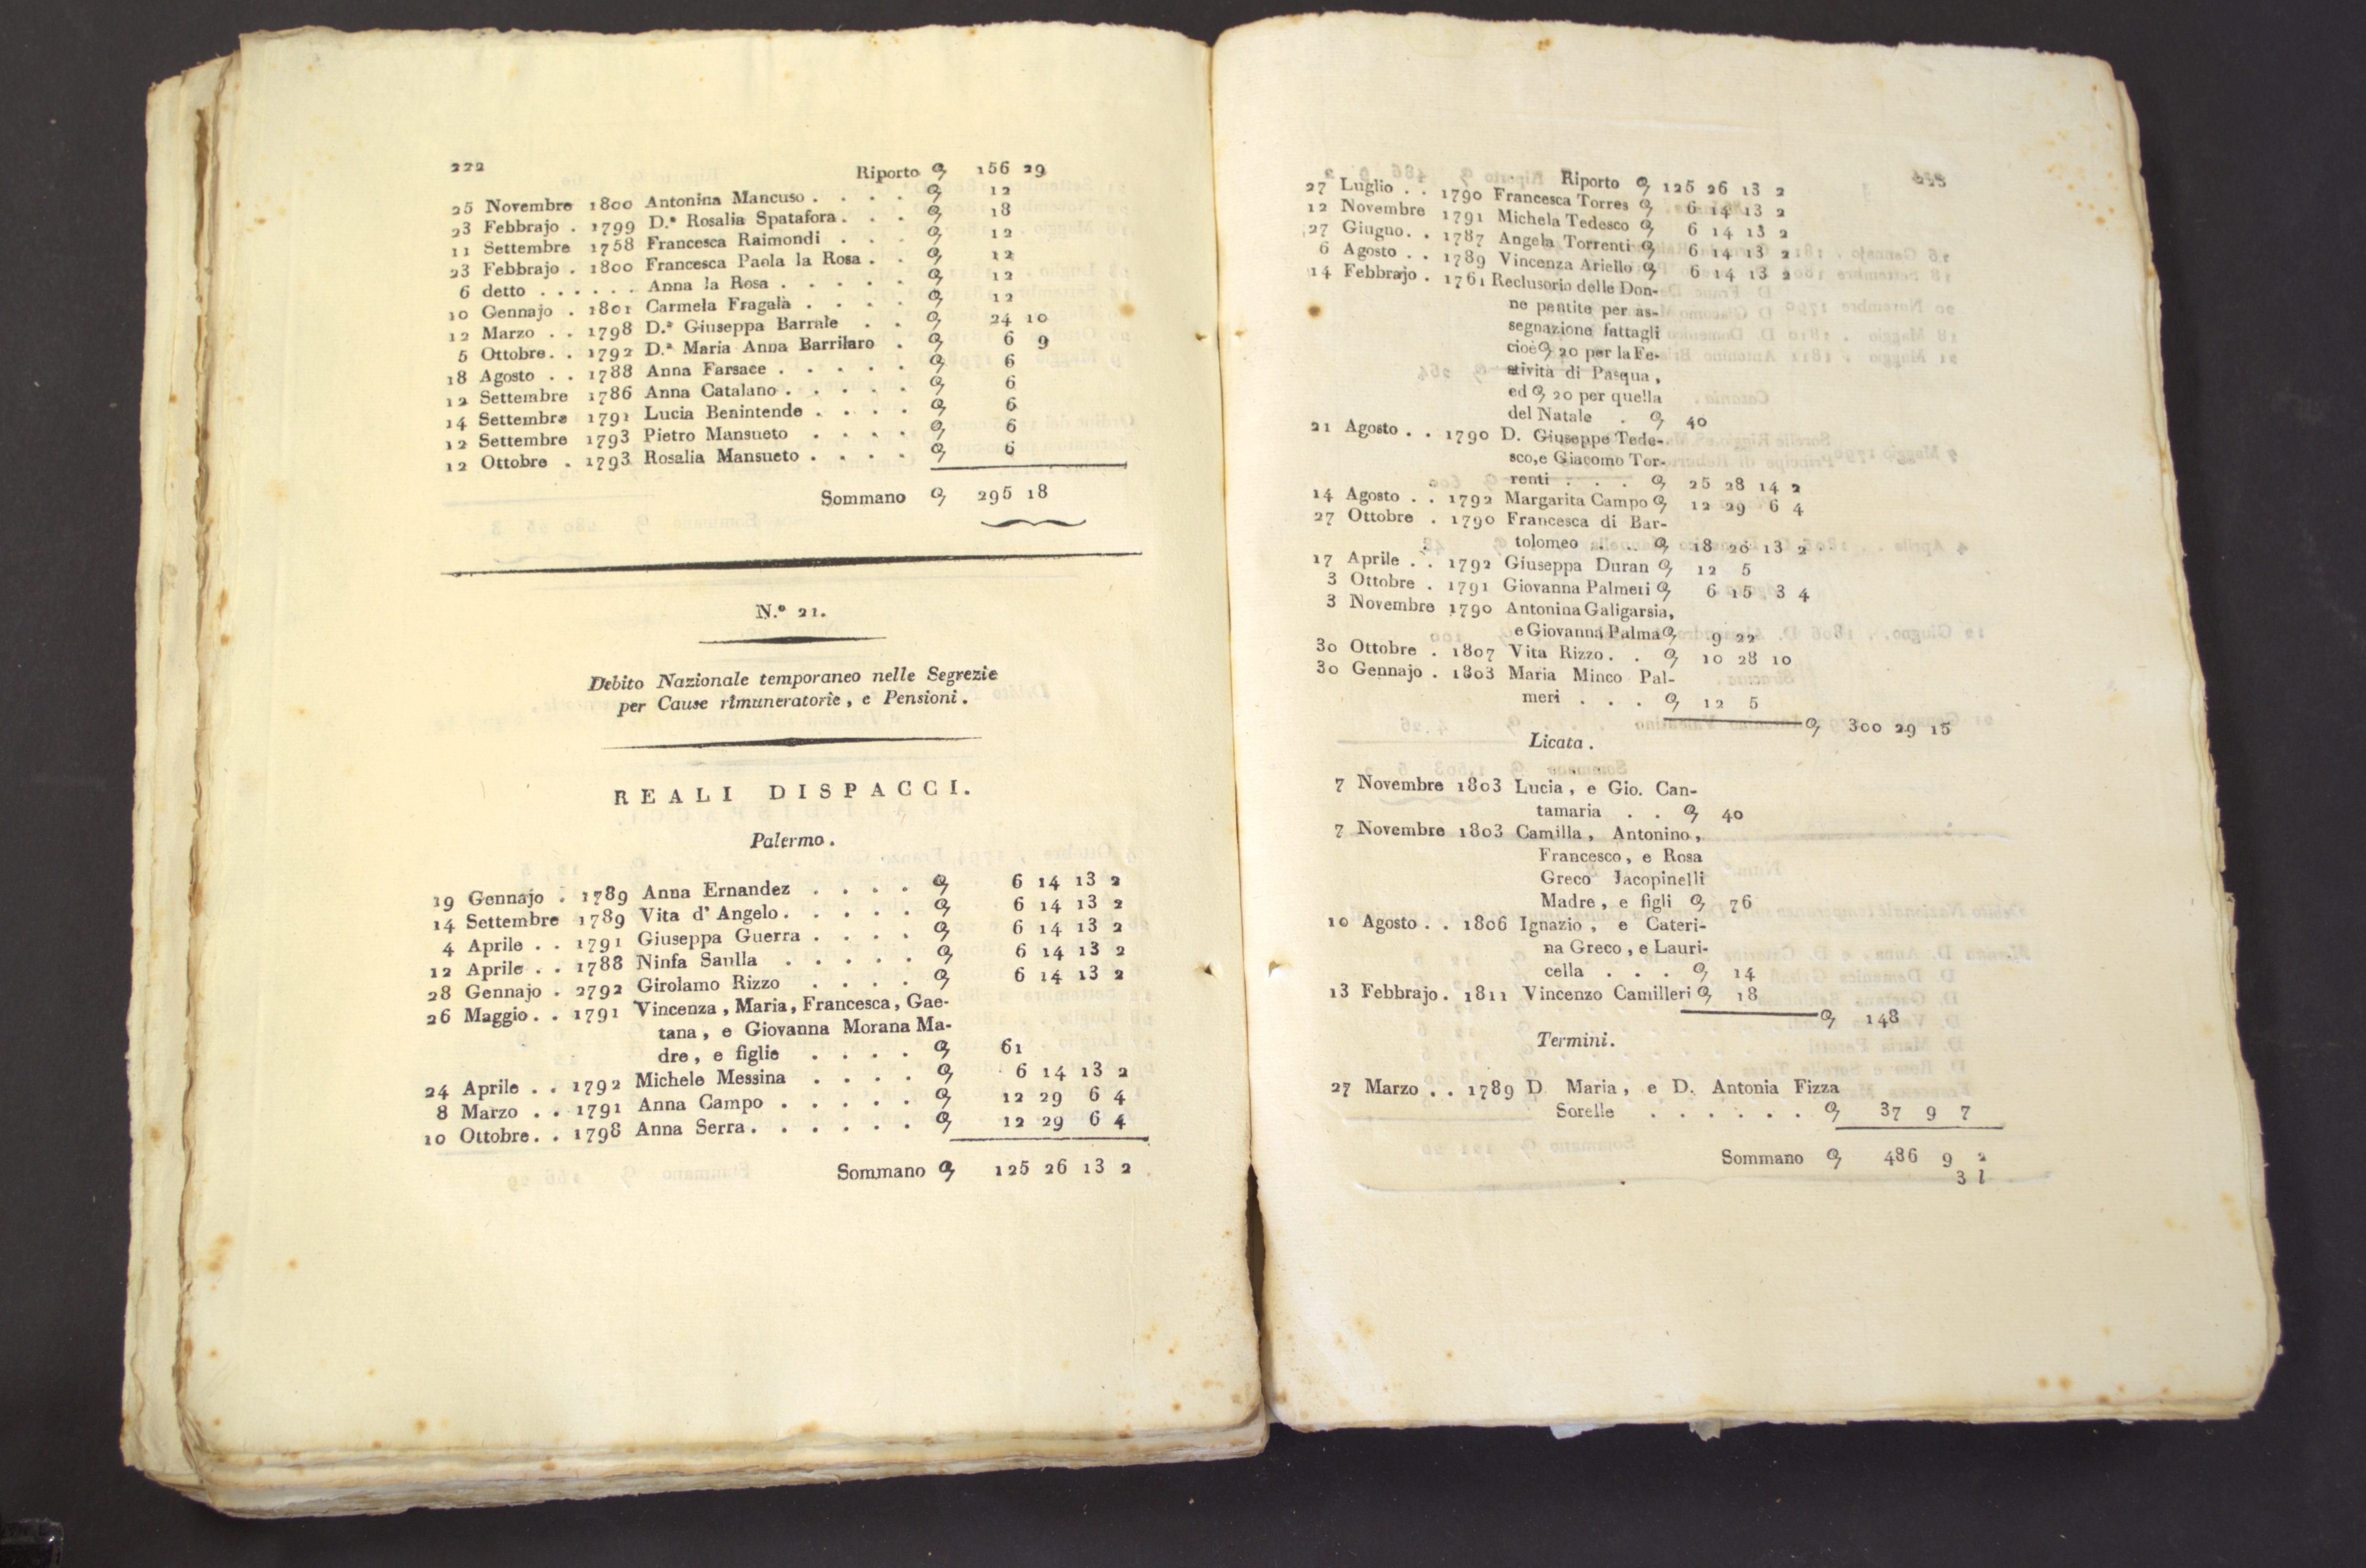 222
Riporto 156 29
25 Novembre 1800 Antonina Mancuso . . . . 12
23 Febbrajo . 1799 D.ª Rosalia Spatafora . . . 18
11 Settembre 1758 Francesca Raimondi . . . 12
23 Febbrajo . 1800 Francesca Paola la Rosa . . 12
6 detto . . . . . . Anna la Rosa . . . . . 12
10 Gennajo . 1801 Carmela Fragalà . . . . 12
12 Marzo . . 1798 D.ª Giuseppa Barrale . . 24 10
5 Ottobre . . 1792 D.ª Maria Anna Barrilaro . 6 9
18 Agosto . . 1788 Anna Farsace . . . . . 6
12 Settembre 1786 Anna Catalano . . . . . 6
14 Settembre 1791 Lucia Benintende . . . . 6
12 Settembre 1793 Pietro Mansueto . . . . 6
12 Ottobre . 1793 Rosalia Mansueto . . . . 6
Sommano 295 18
N.º 21.
Debito Nazionale temporaneo nelle Segrezie
per Cause rimuneratorie, e Pensioni.
REALI DISPACCI.
Palermo.
19 Gennajo . 1789 Anna Ernandez . . . . 6 14 13 2
14 Settembre 1789 Vita d' Angelo . . . . . 6 14 13 2
4 Aprile . . 1791 Giuseppa Guerra . . . . 6 14 13 2
12 Aprile . . 1788 Ninfa Sanlla . . . . . 6 14 13 2
28 Gennajo . 2792 Girolamo Rizzo . . . . 6 14 13 2
26 Maggio . . 1791 Vincenza, Maria, Francesca, Gae-
tana, e Giovanna Morana Ma-
dre, e figlie . . . . 61
24 Aprile . . 1792 Michele Messina . . . . 6 14 13 2
8 Marzo . . 1791 Anna Campo . . . . . 12 29 6 4
10 Ottobre . . 1798 Anna Serra . . . . . . 12 29 6 4
Sommano 125 26 13 2
223
Riporto 125 26 13 2
27 Luglio . . 1790 Francesca Torres 6 14 13 2
12 Novembre 1791 Michela Tedesco 6 14 13 2
27 Giugno . . 1787 Angela Torrenti 6 14 13 2
6 Agosto . . 1789 Vincenza Ariello 6 14 13 2
14 Febbrajo . 1761 Reclusorio delle Don-
ne pentite per as-
segnazione fattagli
cioè 20 per la Fe-
stività di Pasqua,
ed 20 per quella
del Natale . 40
21 Agosto . . 1790 D. Giuseppe Tede-
sco, e Giacomo Tor-
renti . . . 25 28 14 2
14 Agosto . . 1792 Margarita Campo 12 29 6 4
27 Ottobre . 1790 Francesca di Bar-
tolomeo . . . 18 20 13 2
17 Aprile . . 1792 Giuseppa Duran 12 5
3 Ottobre . 1791 Giovanna Palmeri 6 15 3 4
3 Novembre 1790 Antonina Galigarsia,
e Giovanna Palma 9 22
30 Ottobre . 1807 Vita Rizzo . . 10 28 10
30 Gennajo . 1803 Maria Minco Pal-
meri . . . 12 5
300 29 15
Licata.
7 Novembre 1803 Lucia, e Gio. Can-
tamaria . . 40
7 Novembre 1803 Camilla, Antonino,
Francesco, e Rosa
Greco Jacopinelli
Madre, e figli 76
10 Agosto . . 1806 Ignazio, e Cateri-
na Greco, e Lauri-
cella . . . 14
13 Febbrajo . 1811 Vincenzo Camilleri 18
148
Termini.
27 Marzo . . 1789 D Maria, e D. Antonia Fizza
Sorelle . . . . . . 37 9 7
Sommano 486 9 2
3 l